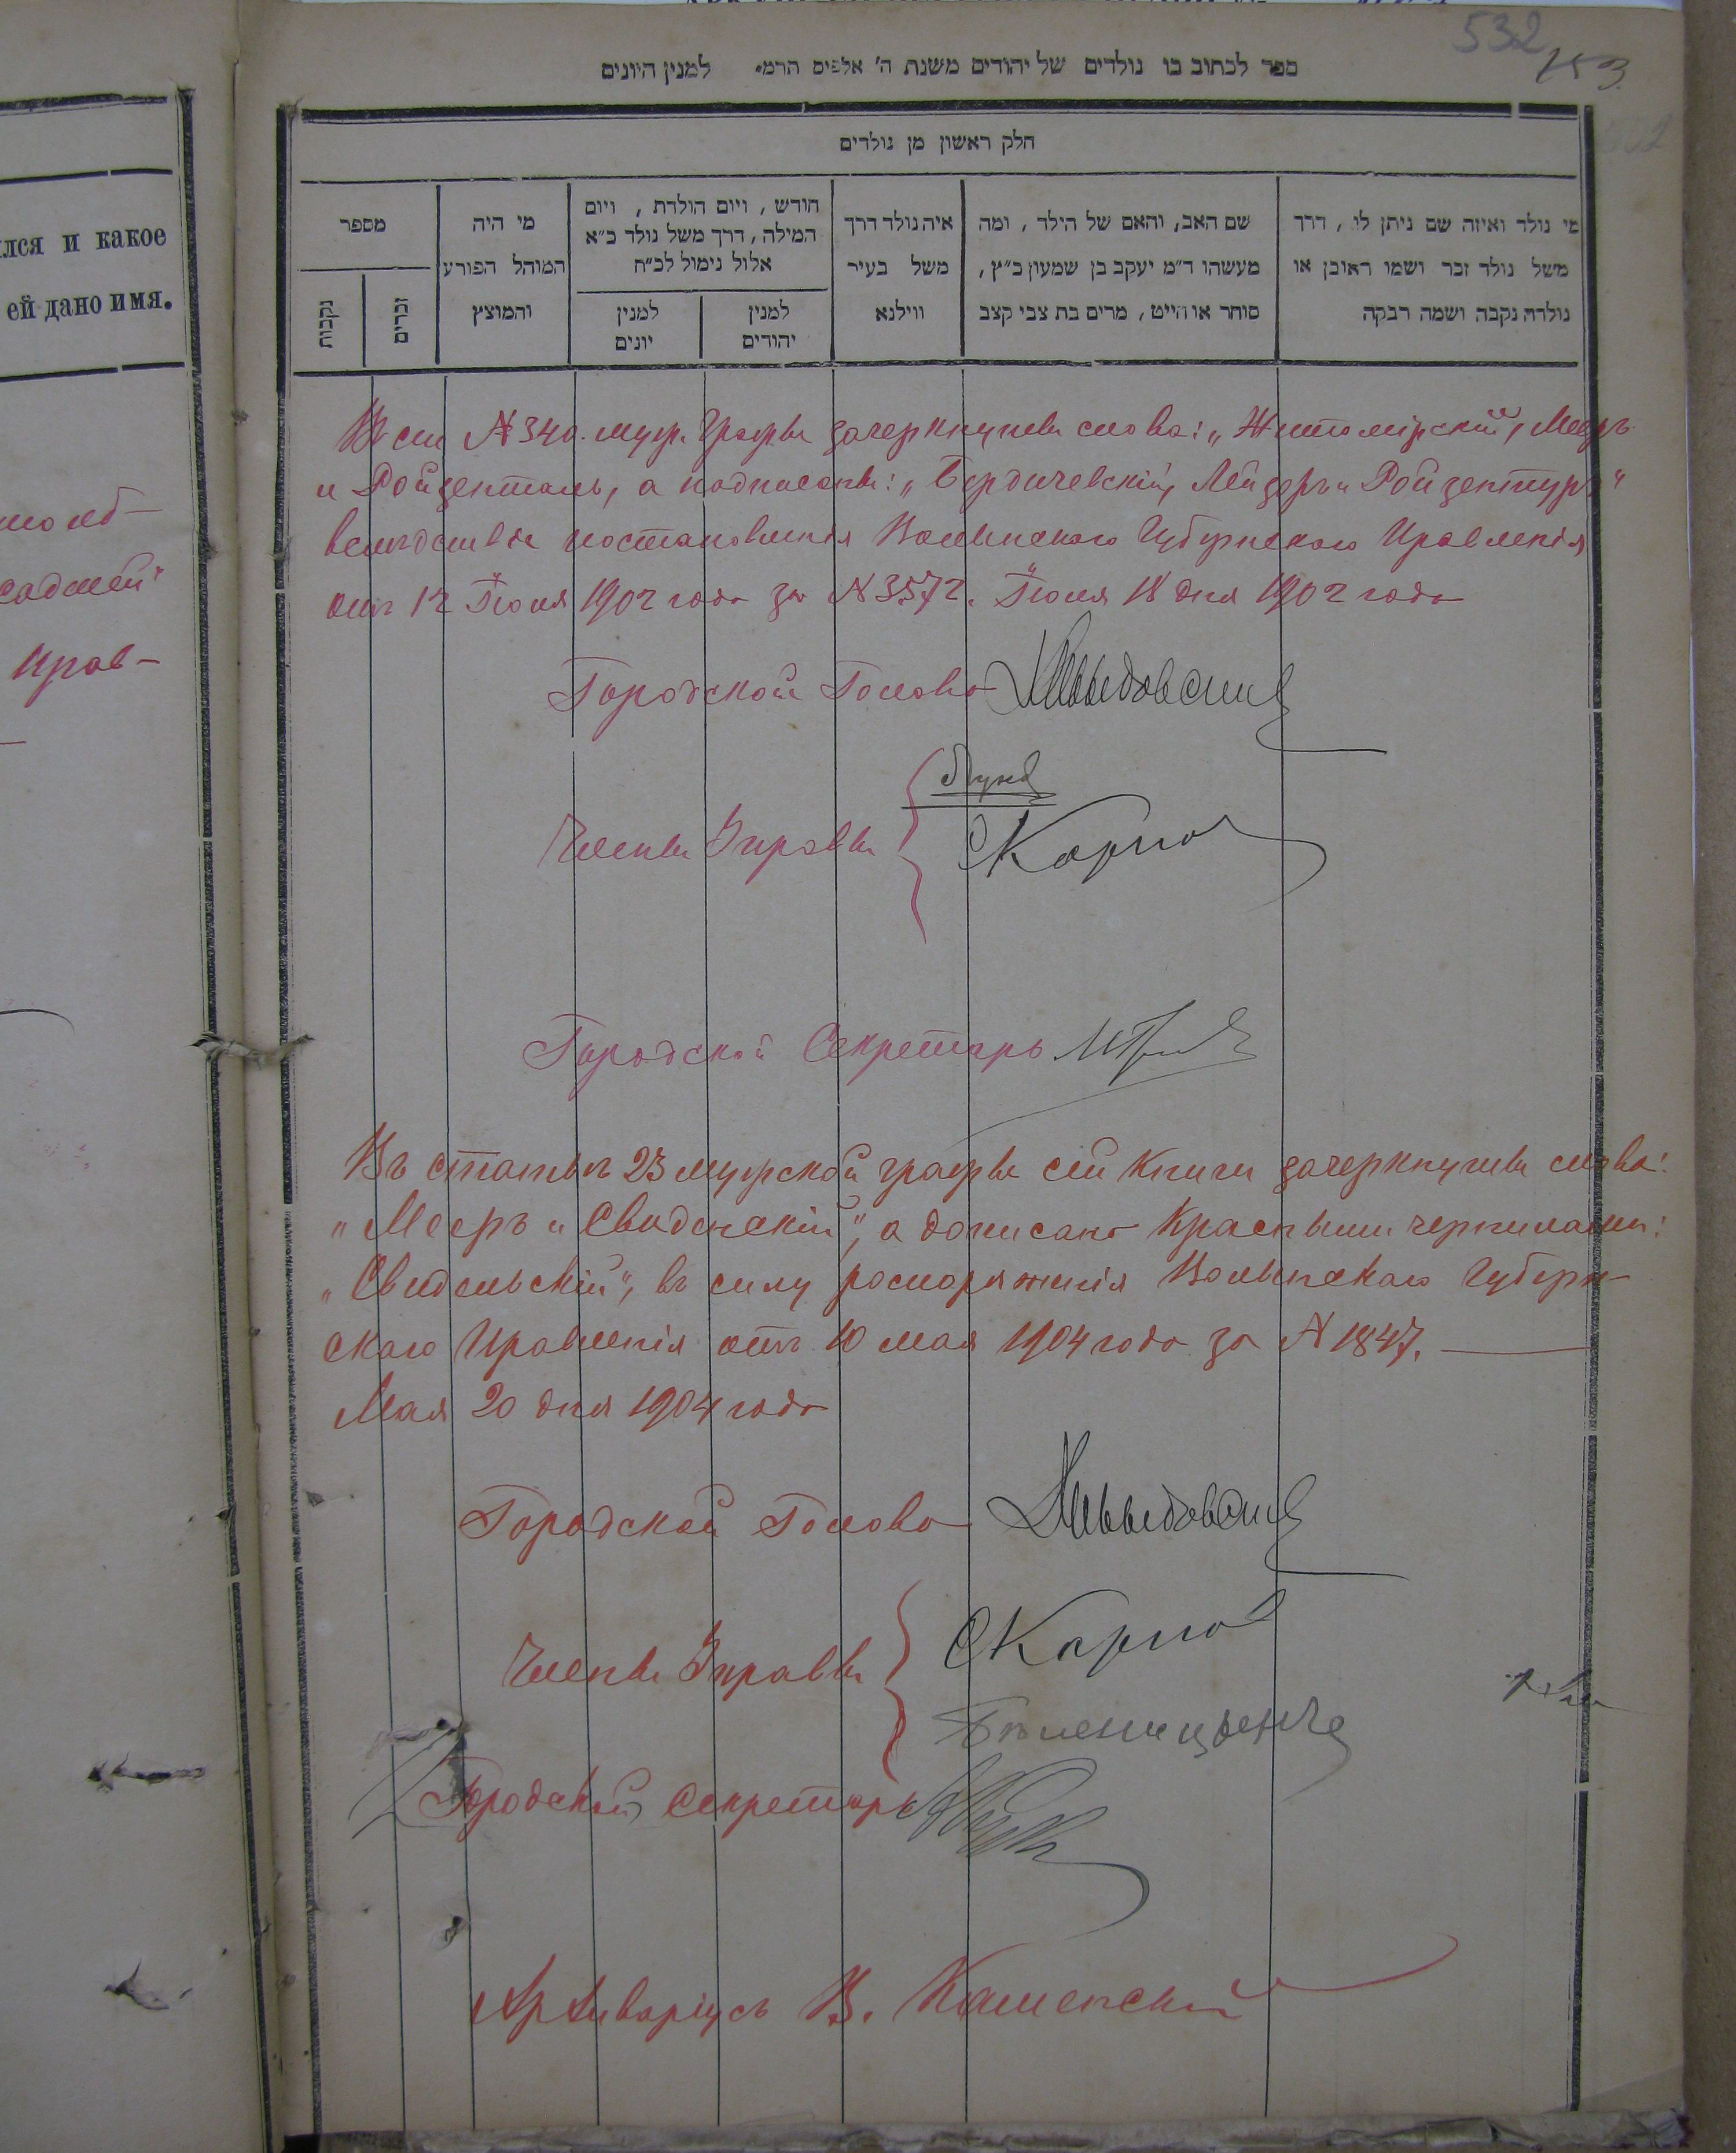 532
153.
ספר לכתוב בו נולדים של יהודים משנת ה' אלפים הרמ' למנין היונים
חלק ראשון מן נולדים
מי נולד ואיזה שם ניתן לו, דרך
משל נולד זכר ושמו ראובן או
נולדה נקבה ושמה רבקה
שם האב, והאם של הילד, ומה
מעשהו ד"מ יעקב בן שמעון כ"ץ,
סוחר או חייט, מרים בת צבי קצב
איה נולד דרך
משל בעיר
ווילנא
חודש, ויום הולדת, ויום
המילה, דרך משל נולד כ"א
אלול נימול לכ"ח
למנין
יהודים
למנין
יונים
מי היה
המוהל הפורע
והמוצץ
מספר
זכרים
נקבות
лся и какое
ей дано имя.
Прав-
В ст N 340. муж. графы зачеркнуты слова: „Житомірскій, Меєръ
и Ройзенталь, а надписаны: „Бердичевскій, Лейзоръ и Ройзентуръ"
вслѣдствіе постановленія Волынскаго Губернскаго Правленія
отъ 12 Іюля 1902 года за N 3572. Іюля 18 дня 1902 года
Городской Голова
Члены Управы
Карпо
Городской Секретарь
Въ статьѣ 23 мужской графы сей книги зачеркнуты слова:
„Меєръ и Свиденскій", а дописано красными чернилами:
„Свидельскій", въ силу распоряженія Волынскаго Губерн-
скаго Правленія отъ 10 мая 1904 года за N 1847.
Мая 20 дня 1904 года
Городской Голова
Члены Управы
Карпо
Городской Секретарь
Архиваріусъ В. Каменскій